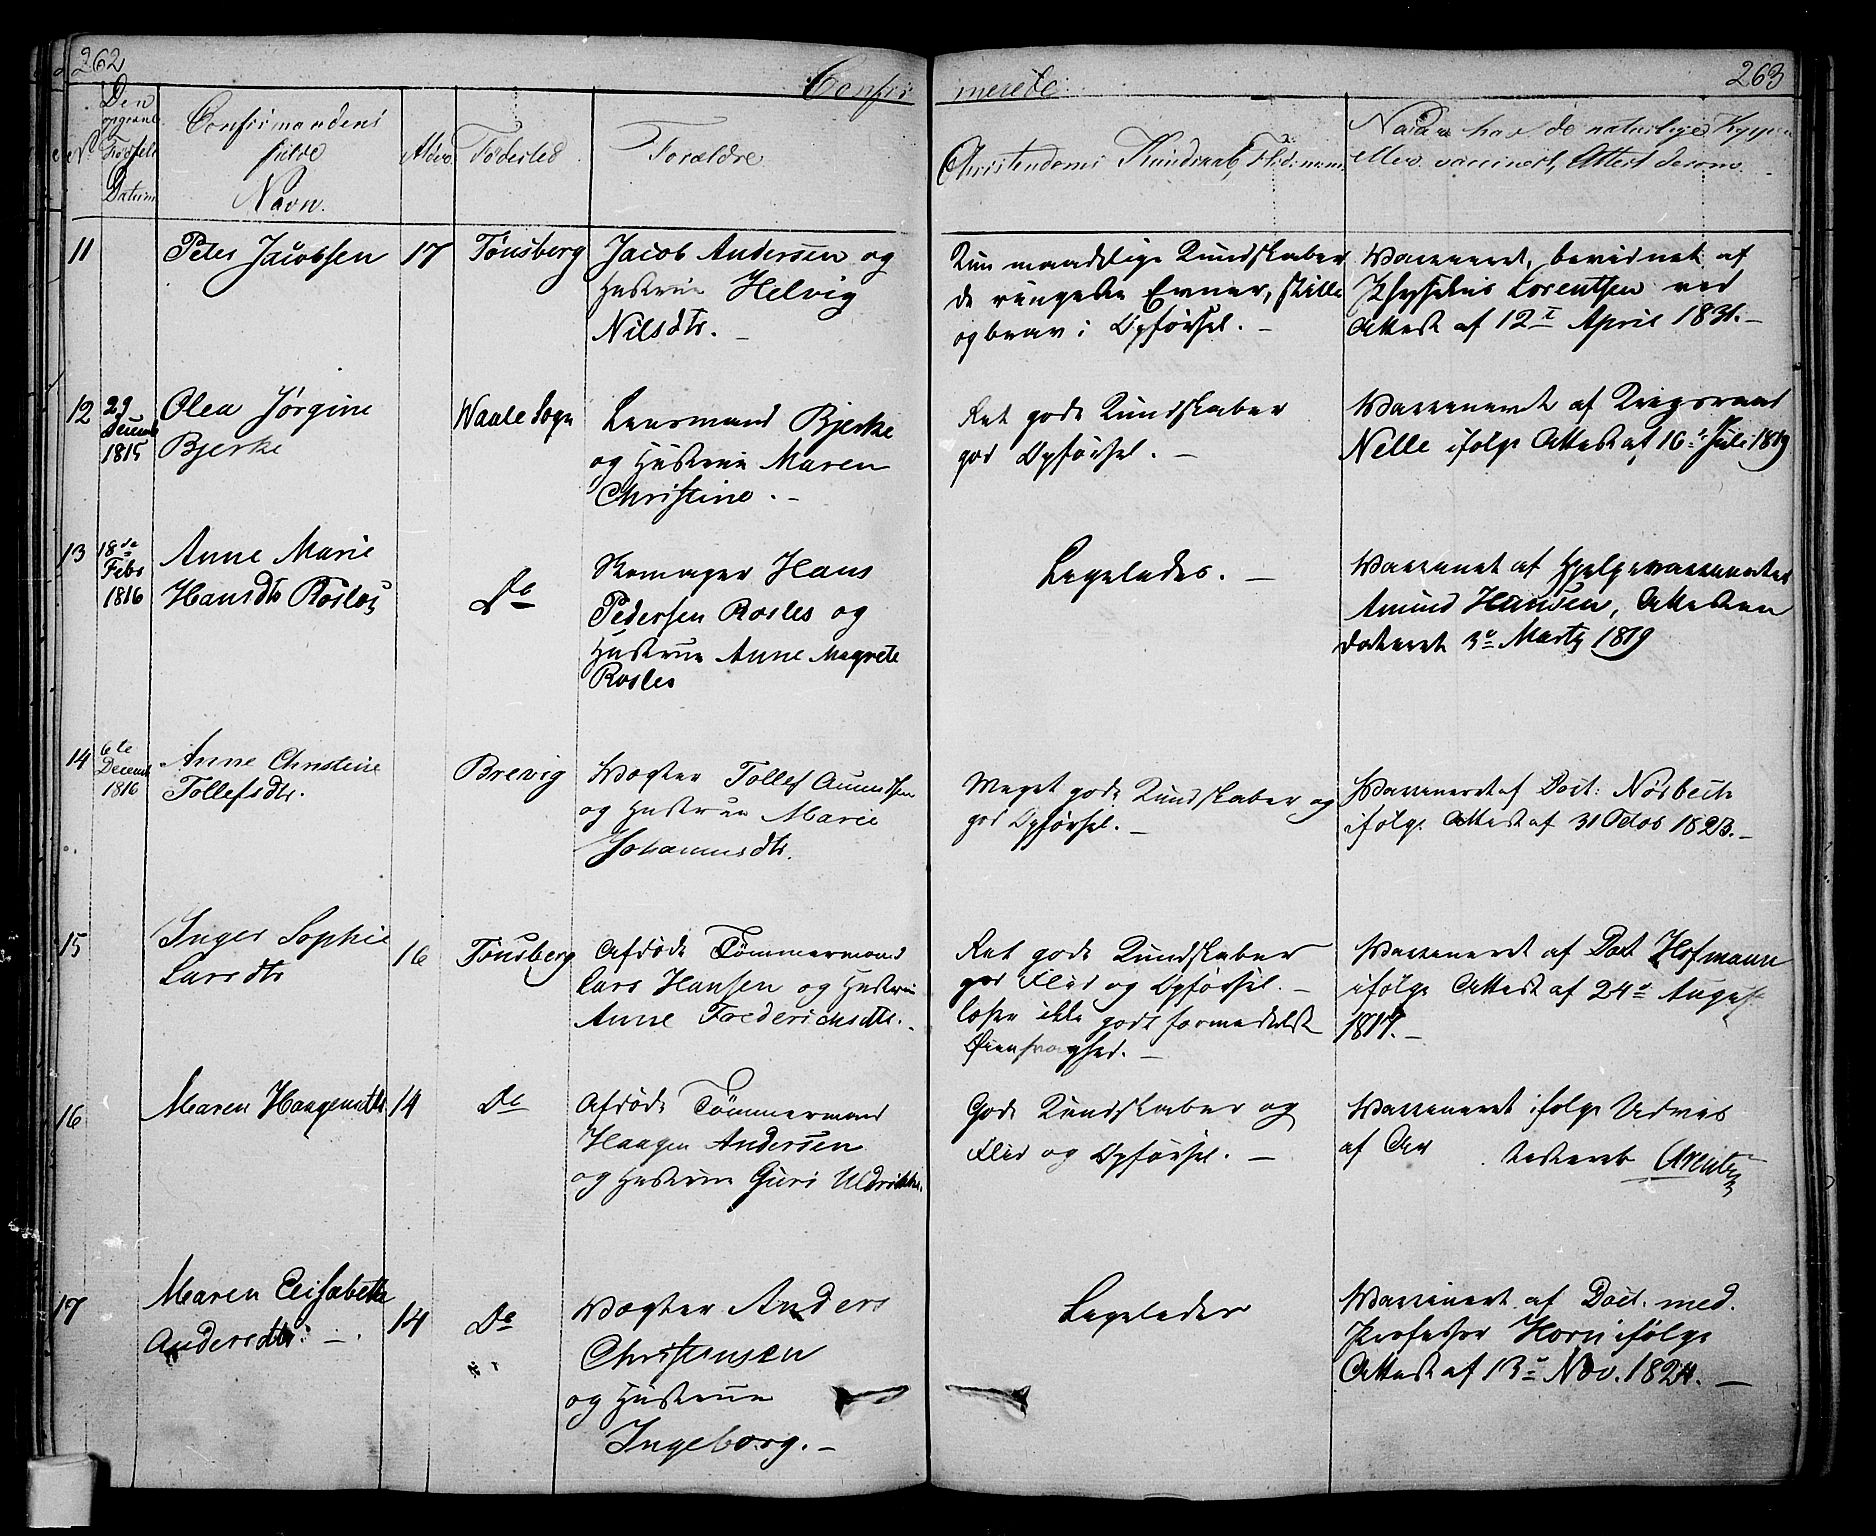 262
Confir
merede
263
Den
opgivne
Fødsels
Datum
No
Confirmandens
fulde
Navn.
Alder
Fødested
Forældre
Christendoms Kundskab, Flid
Naar har de naturlige Kopper
eller vaccineret, Attest derom.
11
Peter Jacobsen
17
Tønsberg
Jacob Andersen og
Hustrue Helvig
Nilsdtr. -
Kun maadelige Kundskaber
de ringeste Evner, skikke
og brav i Opførsel. -
Vaccineret, bevidnet af
Physikus Lorentsen ved
Attest af 12te April 1831. -
12
29
Decemb
1815
Olea Jørgine
Bjerke
Waale Sogn
Lensmand Bjerke
og Hustrue Maren
Christine. -
Ret gode Kundskaber
god Opførsel. -
Vaccineret af Krigsraad
Nelle ifølge Attest af 16de Juli 1819
13
18de
Febr
1816
Anne Marie
Hansdtr Rosles
Do
Skomager Hans
Pedersen Rosles og
Hustrue Anne Magrete
Rosles
Ligeledes. -
Vaccinert af Hjelpevaccinatør
Amund Hansen, Attesten
dateret 3de Marts 1819
14
6te
Decemb
1816
Anne Christine
Tollefsdtr.
Brevig
Vægter Tollef Amundsen
og Hustrue Marie
Johannisdtr.
Meget gode Kundskaber og
god Opførsel. -
Vaccineret af Doct: Nørbech
ifølge Attest af 31 Octob 1823. -
15
Inger Sophie
Larsdtr
16
Tønsberg
Afdøde Tømmermand
Lars Hansen og Hustrue
Anne Frederichsdtr. -
Ret gode Kundskaber
god Flid og Opførsel. -
læser ikke godt formedelst
Øiensvaghed. -
Vaccineret af Doct Hofmann
ifølge Attest af 24de August
1817. -
16
Maren Haagensdtr
14
Do
Afdøde Tømmermand
Haagen Andersen
og Hustrue Guri Uldrikke.
Gode Kundskaber og
Flid og Opførsel. -
Vaccineret ifølge Udvis
af Ar testereb Arentz
17
Maren Elisabeth
Andersdtr. -
14
Do
Vægter Anders
Christensen
og Hustrue
Ingeborg. -
Ligeledes
Vaccineret af Doct. med.
Professor Horn ifølge
Attest af 13de Nov. 1824. -